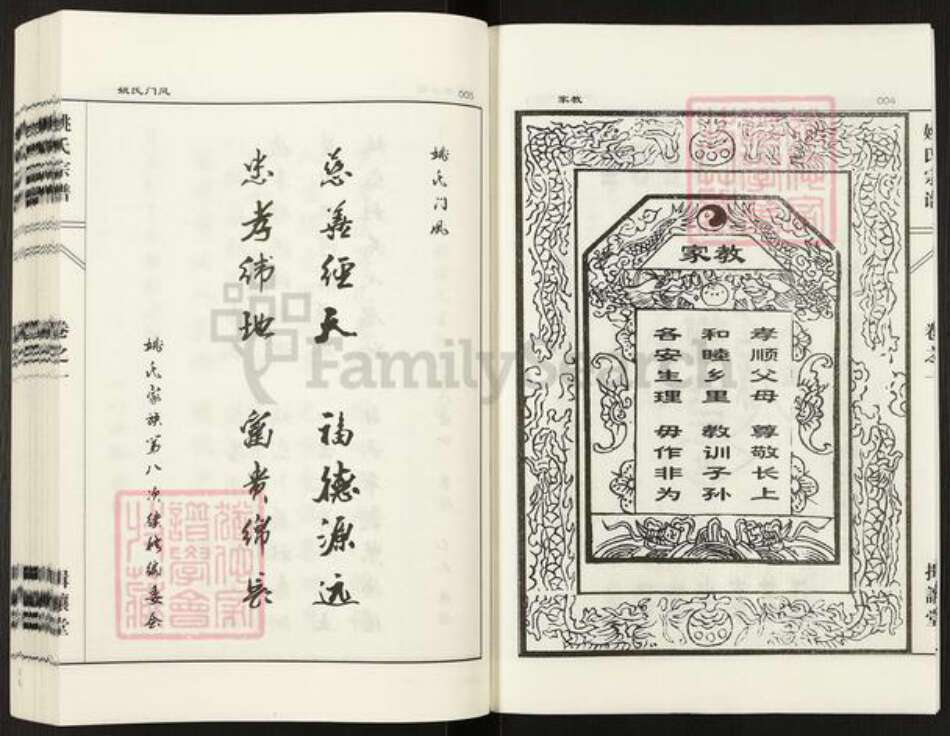 姚氏门风
003
姚氏宗谱
卷之一
揖让堂
姚氏门风
慈善经天 福德源远
忠孝纬地 富贵绵长
姚氏家族第八次续谱编委会
家教
004
家教
孝顺父母 尊敬长上
和睦乡里 教训子孙
各安生理 毋作非为
姚氏宗谱
卷之一
FamilySearch